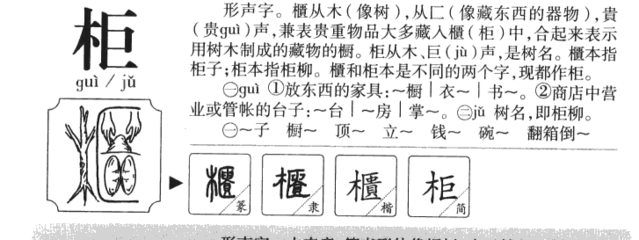 柜
guì / jǔ
形声字。櫃从木(像树),从匚(像藏东西的器物),貴
(贵guì)声,兼表贵重物品大多藏入櫃(柜)中,合起来表示
用树木制成的藏物的橱。柜从木、巨(jù)声,是树名。櫃本指
柜子;柜本指柜柳。櫃和柜本是不同的两个字,现都作柜。
㊀guì ①放东西的家具:~橱|衣~|书~。②商店中营
业或管帐的台子:~台|~房|掌~。㊁jǔ 树名,即柜柳。
㊀~子 橱~ 顶~ 立~ 钱~ 碗~ 翻箱倒~
櫃 篆 櫃 隶 櫃 楷 柜 简